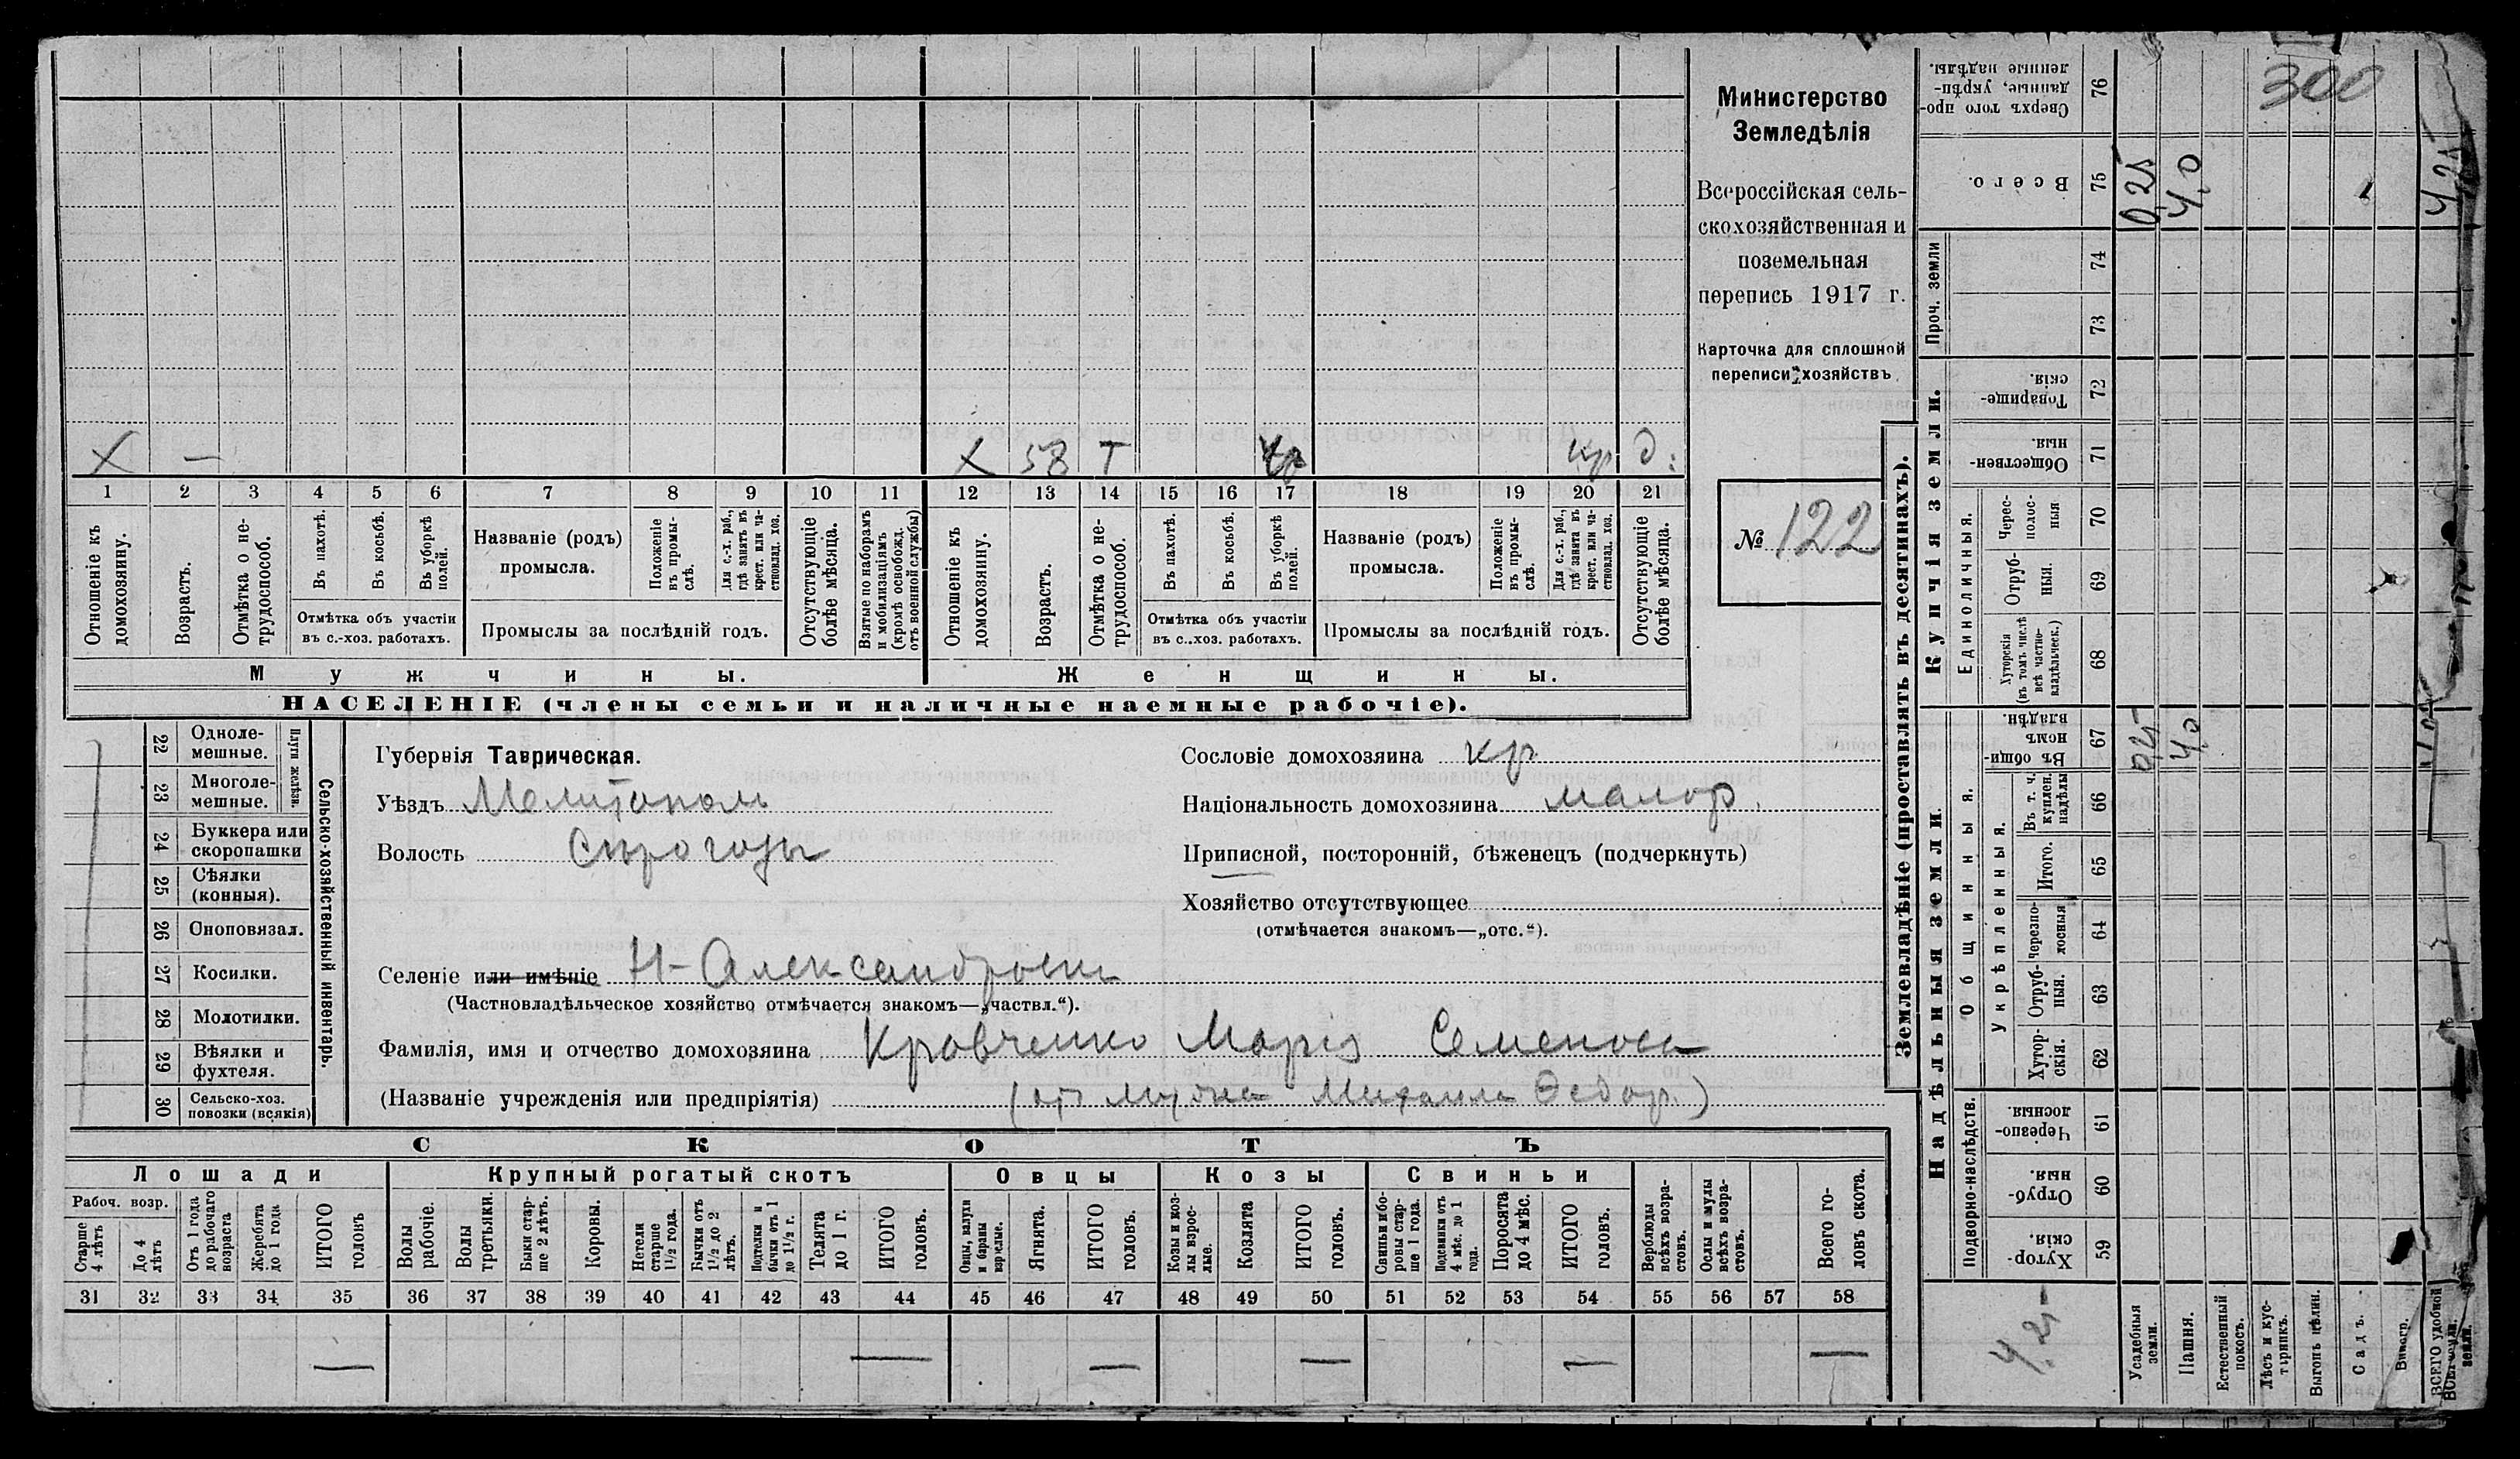 Министерство
Земледѣлія
Всероссійская сель-
скохозяйственная и
поземельная
перепись 1917 г.
Карточка для сплошной
переписи хозяйствъ
№ 122
X — X 58 Т кр д:
1 2 3 4 5 6 7 8 9 10 11 12 13 14 15 16 17 18 19 20 21
Отношеніе къ домохозяину.
Возрастъ.
Отмѣтка о не-трудоспособ.
Въ пахотѣ.
Въ косьбѣ.
Въ уборкѣ полей.
Отмѣтка объ участіи
въ с.-хоз. работахъ.
Названіе (родъ)
промысла.
Положеніе въ промы-слѣ.
Для с.-х. раб., гдѣ занятъ въ крест. или ча-ствовлад. хоз.
Промыслы за послѣдній годъ.
Отсутствующіе болѣе мѣсяца.
Взятые по наборамъ и мобилизаціямъ (кромѣ освобожд. отъ военной службы)
Отношеніе къ домохозяину.
Возрастъ.
Отмѣтка о не-трудоспособ.
Въ пахотѣ.
Въ косьбѣ.
Въ уборкѣ полей.
Отмѣтка объ участіи
въ с.-хоз. работахъ.
Названіе (родъ)
промысла.
Положеніе въ промы-слѣ.
Для с.-х. раб., гдѣ занята въ крест. или ча-ствовлад. хоз.
Промыслы за послѣдній годъ.
Отсутствующіе болѣе мѣсяца.
Мужчины. Женщины.
НАСЕЛЕНІЕ (члены семьи и наличные наемные рабочіе).
Сельско-хозяйственный инвентарь.
Плуги желѣзн.
22 Одноле-мешные.
23 Многоле-мешные.
24 Буккера или скоропашки
25 Сѣялки (конныя).
26 Сноповязал.
27 Косилки.
28 Молотилки.
29 Вѣялки и фухтеля.
30 Сельско-хоз. повозки (всякія)
Губернія Таврическая.
Уѣздъ Мелитополь
Волость Сѣрогозы
Сословіе домохозяина кр
Національность домохозяина малор.
Приписной, посторонній, бѣженецъ (подчеркнуть)
Хозяйство отсутствующее
(отмѣчается знакомъ—„отс.“).
Селеніе или имѣніе Н-Александровка
(Частновладѣльческое хозяйство отмѣчается знакомъ—„частвл.“).
Фамилія, имя и отчество домохозяина Кравченко Марія Семенова
(Названіе учрежденія или предпріятія) (от мужа Михаила Ѳедор.)
СКОТЪ
Лошади Крупный рогатый скотъ Овцы Козы Свиньи
Рабоч. возр.
Старше 4 лѣтъ
До 4 лѣтъ
Отъ 1 года до рабочаго возраста
Жеребята до 1 года
ИТОГО головъ
Волы рабочіе.
Волы третьяки.
Быки стар-ше 2 лѣтъ.
Коровы.
Нетели старше 1½ года.
Бычки отъ 1½ до 2 лѣтъ.
Подтелки и бычки отъ 1 до 1½ г.
Телята до 1 г.
ИТОГО головъ.
Овцы, валухи и бараны взрослые.
Ягнята.
ИТОГО головъ.
Козы и коз-лы взрос-лые.
Козлята
ИТОГО головъ.
Свиньи и бо-ровы стар-ше 1 года.
Подсвинки отъ 4 мѣс. до 1 года.
Поросята до 4 мѣс.
ИТОГО головъ.
Верблюды всѣхъ возра-стовъ.
Ослы и мулы всѣхъ возра-стовъ.
Всего го-ловъ скота.
31 32 33 34 35 36 37 38 39 40 41 42 43 44 45 46 47 48 49 50 51 52 53 54 55 56 57 58
— — — — — —
Землевладѣніе (проставлять въ десятинахъ).
Сверхъ того про-данные, укрѣп-ленные надѣлы. 76 300
Всего. 75 0,25 4,0 4,25
Проч. земли
74
73
Купчія земли.
Товарище-скія. 72
Обществен-ныя. 71
Единоличныя.
Черес-полос-ныя 70
Отруб-ныя. 69
Хуторскія (въ томъ числѣ всѣ частно-владѣльческ.) 68
Надѣльныя земли.
Общинныя.
Въ общин-номъ владѣн. 67 0,25 4,0
Укрѣпленныя.
Въ т. ч. куплен. надѣлы 66
Итого. 65
Черезпо-лосныя 64
Отруб-ныя. 63
Хутор-скія. 62
Подворно-наслѣдств.
Черезпо-лосныя 61
Отруб-ныя. 60
Хутор-скія. 59
Усадебныя земли.
Пашня.
Естественный покосъ.
Лѣсъ и кус-тарникъ.
Выгонъ цѣлин.
Садъ.
Виногр.
ВСЕГО удобной земли.